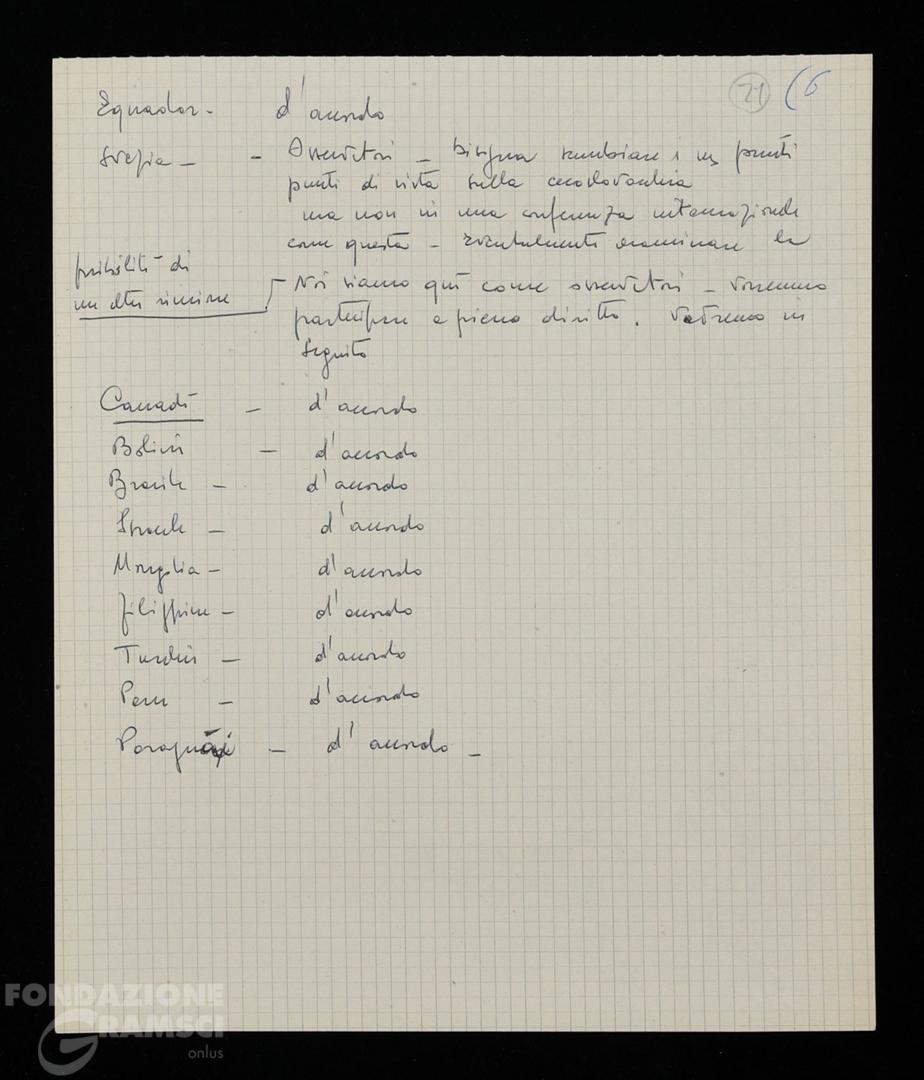 21 (6
Equador - d'accordo
Svezia - - Osservatori - bisogna scambiare i ns punti
punti di vista sulla cecoslovacchia
ma non in una conferenza internazionale
come questa - Eventualmente esaminare la
possibilità di
un altra riunione
Noi siamo qui come osservatori - vorremmo
partecipare a pieno diritto. Vedremo in
seguito
Canadà - d'accordo
Bolivia - d'accordo
Brasile - d'accordo
Israele - d'accordo
Mongolia - d'accordo
Filippine - d'accordo
Turchia - d'accordo
Peru - d'accordo
Paraguai - d'accordo -
FONDAZIONE
GRAMSCI
onlus